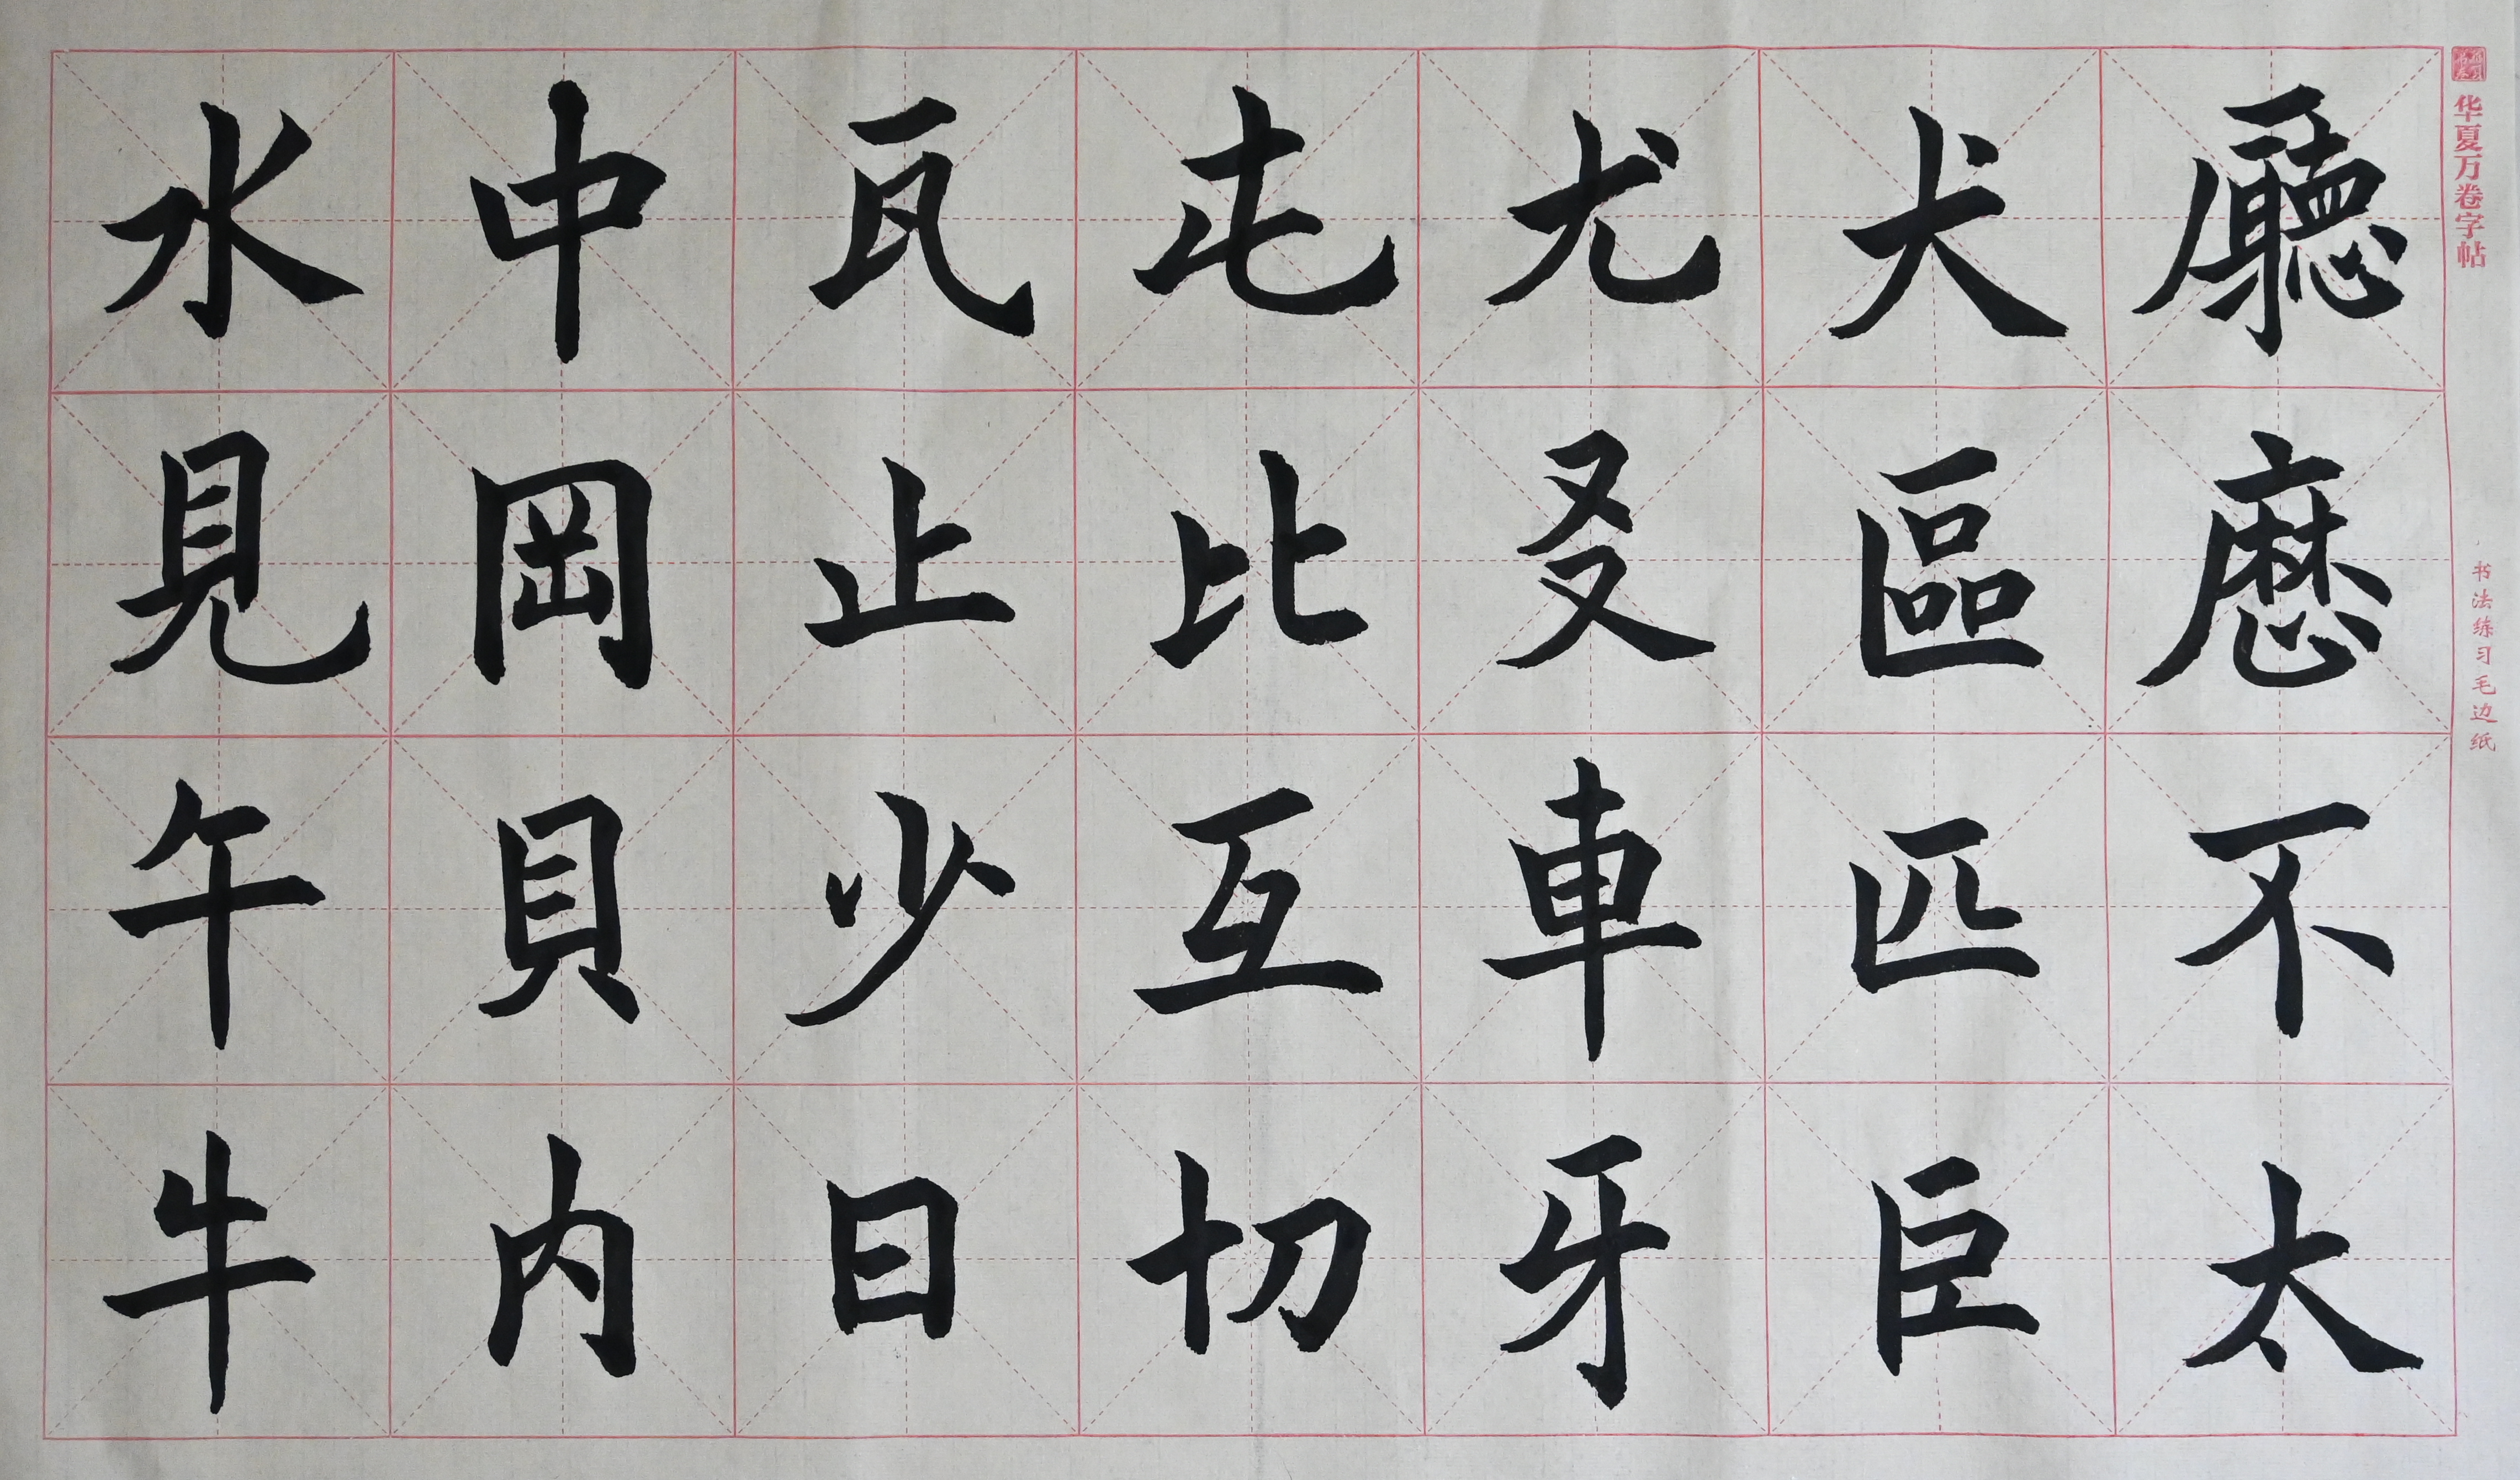 华夏万卷字帖
书法练习毛边纸
廳不太
犬區匹巨
尤㕛車牙
屯比互切
瓦止少日
中岡貝内
水見午牛